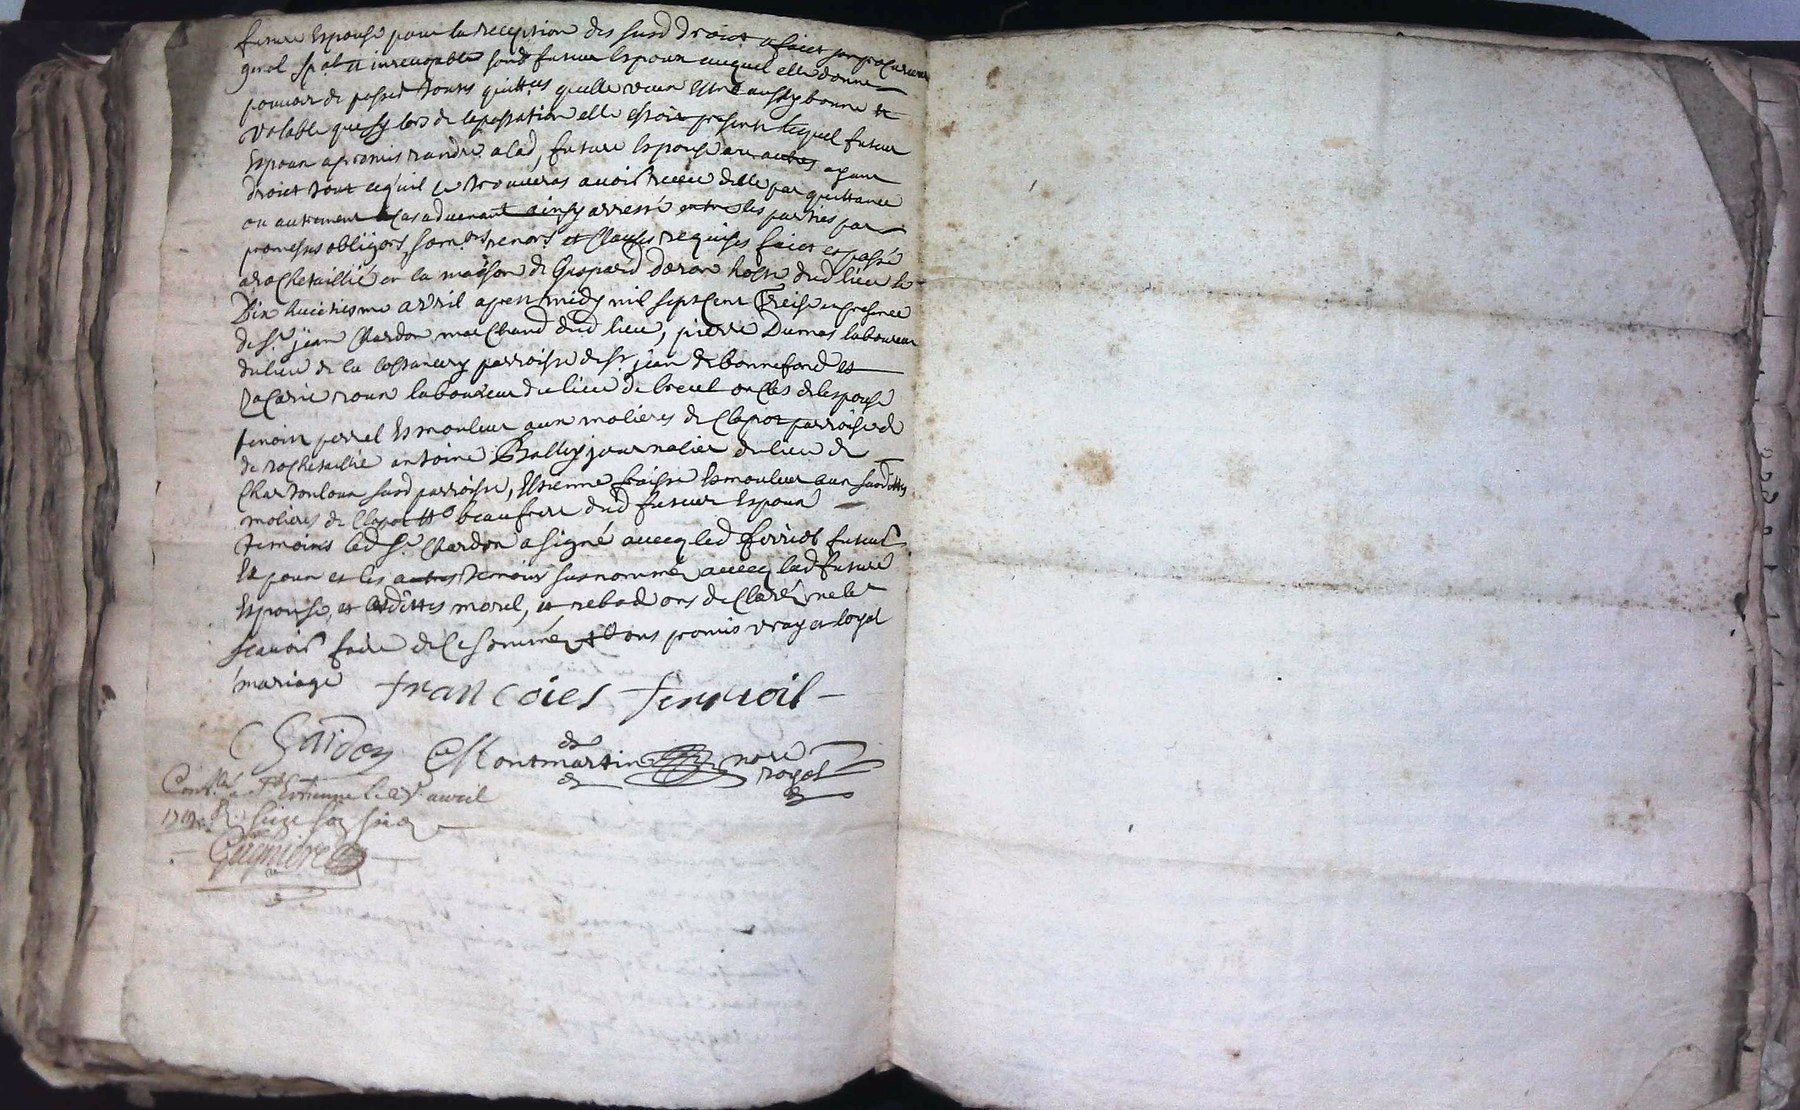 future Espouse pour la reception des susd droict a faict son procureur
gnal spal et irrevocable sond futeur Espoux auquel elle donne
pouvoir de passer toutes quittces quelle veux estre aussy bonne et
valable que sy lors de la passation elle estoit presente lequel futeur
Espoux a promis randre a lad, future Espouse ou autres ayant
droict tout cequil se trouveras avoir receu delle par quittance
ou autrement le cas advenant ainsy arresté entre les parties par
promesses obligors, renors et clauses requises faict et passé
a rochetaillié en la maison de Gaspard hoste dud lieu le
Dix huictiesme avril apres midy mil sept cent Treise en presence
de Sr jean Chardon marchand dud lieu, pierre Dumas laboureur
du lieu de la parroisse de St jean de bonnefond et
laboureur du lieu de oncles de lespouse
Esmouleur aux molieres de Clapot parroisse de
de rochetaillié antoine Bally journalier du lieu de
susd parroisse, Estienne fraisse Esmouleur aux susdittes
molieres de beaufrere dud futeur Espoux
temoins led Sr Chardon a signé avecq led futeur
Espoux et les autres temoins susnommés avecq lad future
Espouse, et lesdittes morel, et ont declaré ne le
scavoir faire de ce sommés et ont promis vray et loyal
mariage
francoies
Chardon Montmartin nore
royal
Conllé a St Estienne le avril
1713 R seize sols six d